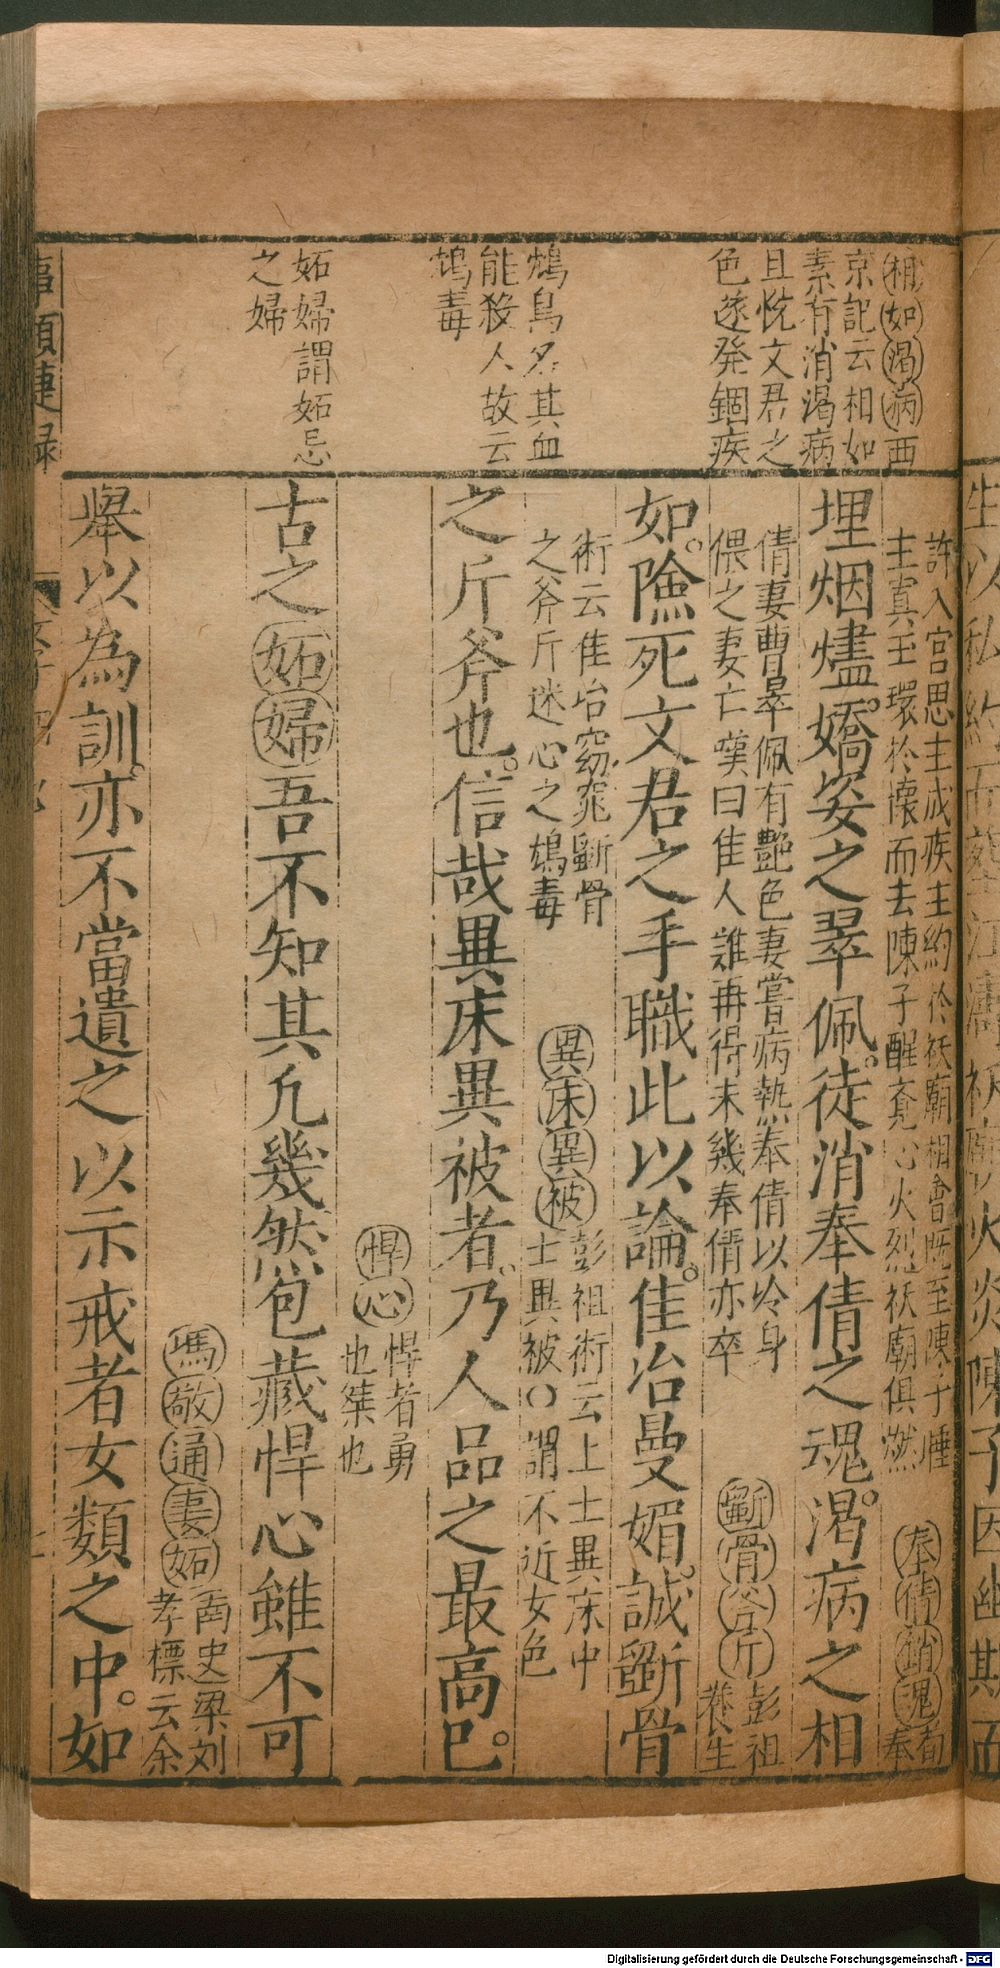 相如渴病西
京記云相如
素有消渴病
且恱文君之
色遂発錮疾
鴆鳥名其血
能殺人故云
鴆毒
妬婦謂妬忌
之婦
許入宮思主成疾主約於祅廟相會既至陳子睡
主寘玉環於懷而去陳子醒竟心火烈祅廟俱燃
奉倩銷魂荀
奉
埋烟燼。嬌姿之翠佩。徒消奉倩之魂。渴病之相
倩妻曹翠佩有艶色妻嘗病熱奉倩以冷身
偎之妻亡嘆曰佳人誰再得未幾奉倩亦卒
斷骨谷斤彭祖
養生
如。險死文君之手職此以論。佳冶曼媚。誠斷骨
術云佳冶窈窕斷骨
之斧斤迷心之鴆毒
異床異被彭祖術云上士異床中
士異被○謂不近女色
之斤斧也。信哉異床異被者。乃人品之最高巳。
悍心悍者勇
也桀也
古之妬婦吾不知其凢幾然包藏悍心雖不可
馮敬通妻妬南史梁刘
孝標云余
舉以為訓。亦不當遺之以示戒者女類之中。如
Digitalisierung gefördert durch die Deutsche Forschungsgemeinschaft - DFG